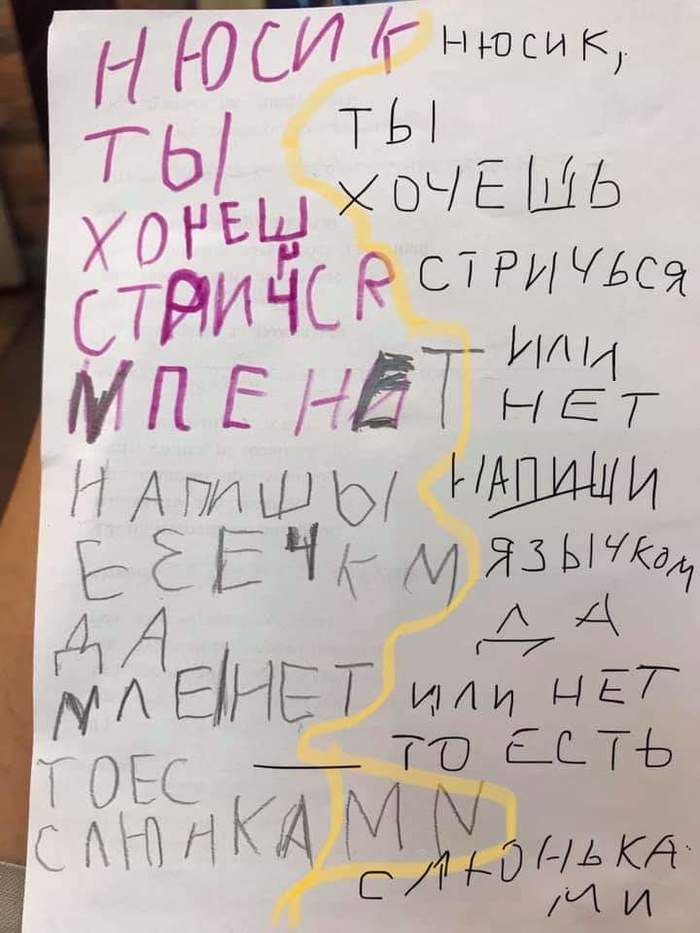 НЮСИК
ТЫ
ХОЧЕШ
СТРИЧСЯ
ИЛЕ НЕТ
НАПИШЫ
ЕЗЕЧКМ
ДА
ИЛЕ НЕТ
ТОЕС
СЛЮНКАМИ
НЮСИК,
ТЫ
ХОЧЕШЬ
СТРИЧЬСЯ
ИЛИ
НЕТ
НАПИШИ
ЯЗЫЧКОМ
ДА
ИЛИ НЕТ
ТО ЕСТЬ
СЛЮНЬКА
МИ